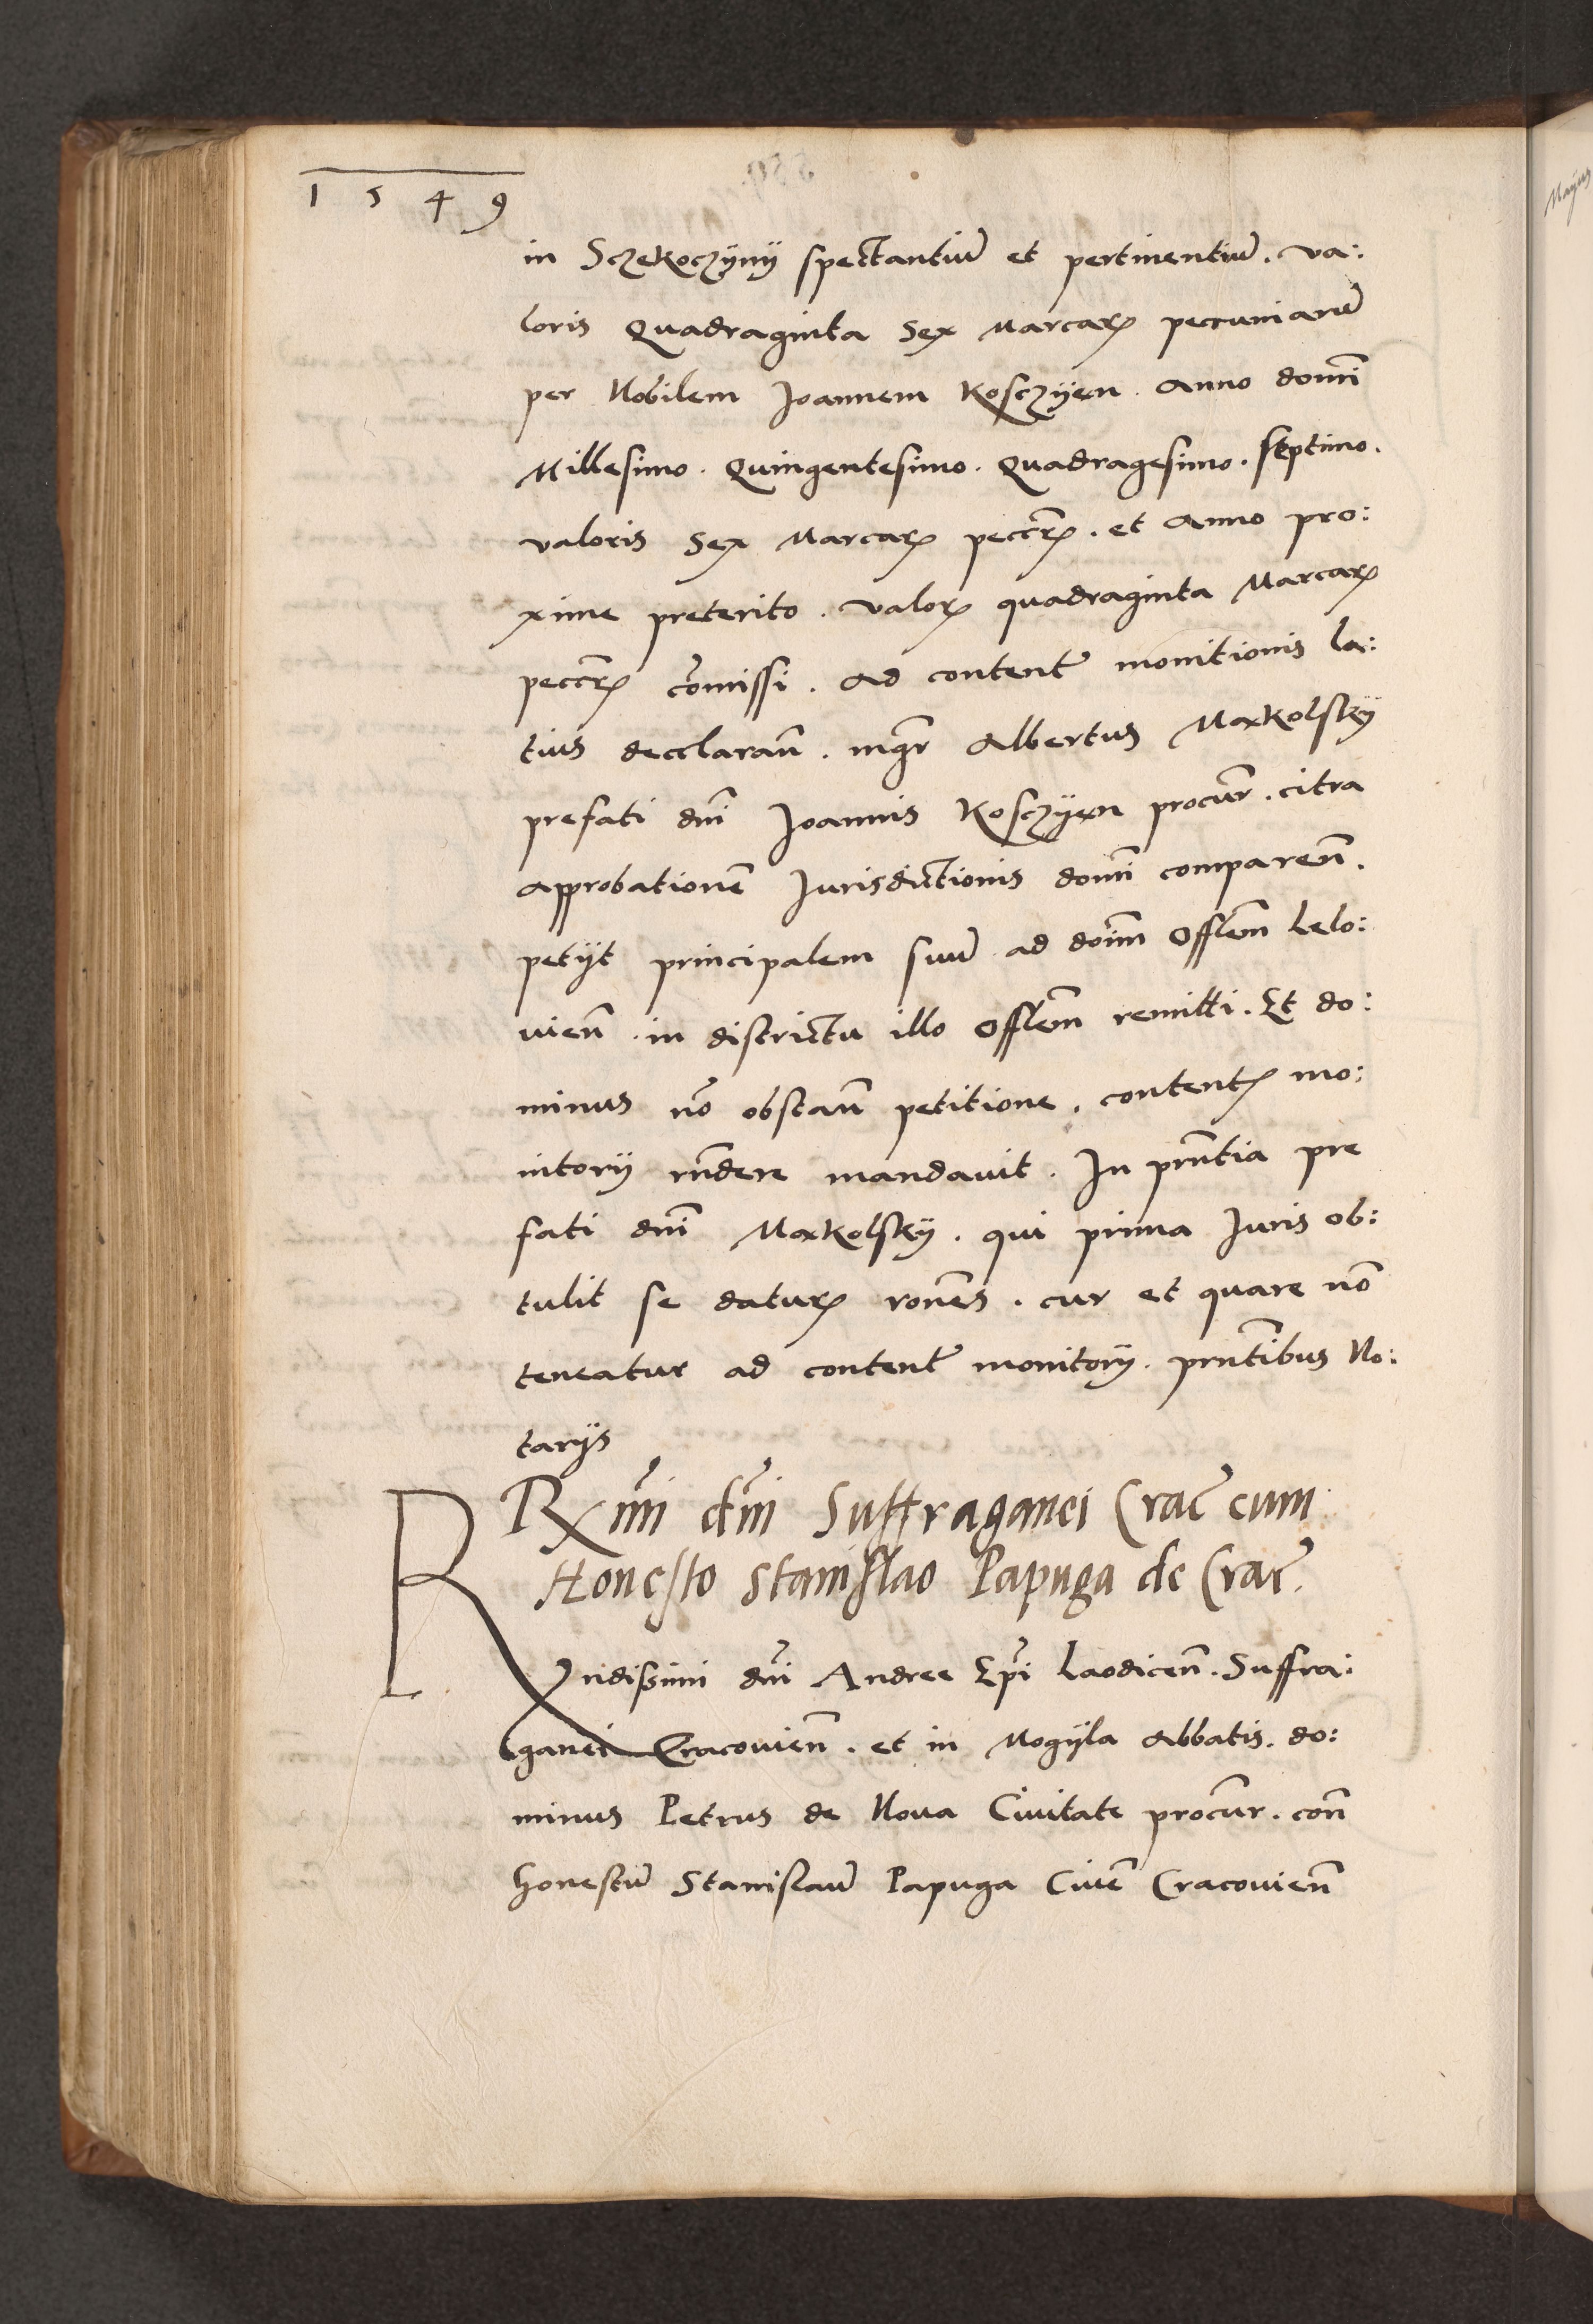 1549
in Sczekoczÿnÿ spectantiu̅ et pertinentiu̅. va:
loris Quadraginta Sex Marcarꝝ pecuniaru̅
per Nobilem Joannem Kosczÿen. Anno domi̅
Millesimo. Quingentesimo. Quadragesimo. septimo.
valoris Sex Marcarꝝ pecc̅rꝝ. et Anno pro:
xime preterito. valorꝝ quadraginta Marcarꝝ
pecc̅rꝝ co̅missi. Ad content̅ monitionis la:
tius decclaran̅. mgr̅ Albertus Maxkolskÿ
prefati dn̅i Joannis Kosczÿen procur̅. citra
approbatione̅ Jurisdictionis domi̅ comparen̅.
petÿt principalem suu̅ ad doim̅ Offlem̅ Lelo:
uien̅. in districtu illo Offlem̅ remitti. Et do:
minus no̅ obstan̅ petitione. contentꝝ mo:
nitorÿ rn̅dere mandavit. In prn̅tia pre
fati dn̅i Maxkolskÿ. qui prima Juris ob:
tulit se daturꝝ rone̅s. cur et quare no̅
teneatur ad content̅ monitorÿ. prn̅tibus No:
tarÿs
Rx̅mi dn̅i Suffraganei Crac̅ cum
Honesto Stanislao Papuga de Crac̅.
R̅ndissimi dn̅i Andree Ep̅i Laodicen̅. Suffra:
ganei Cracouien̅. et in Mogÿla Abbatis. do:
minus Petrus de Noua Ciuitate procur̅. con̅
honestu̅ Stanislau̅ Papuga Ciue̅ Cracouien̅